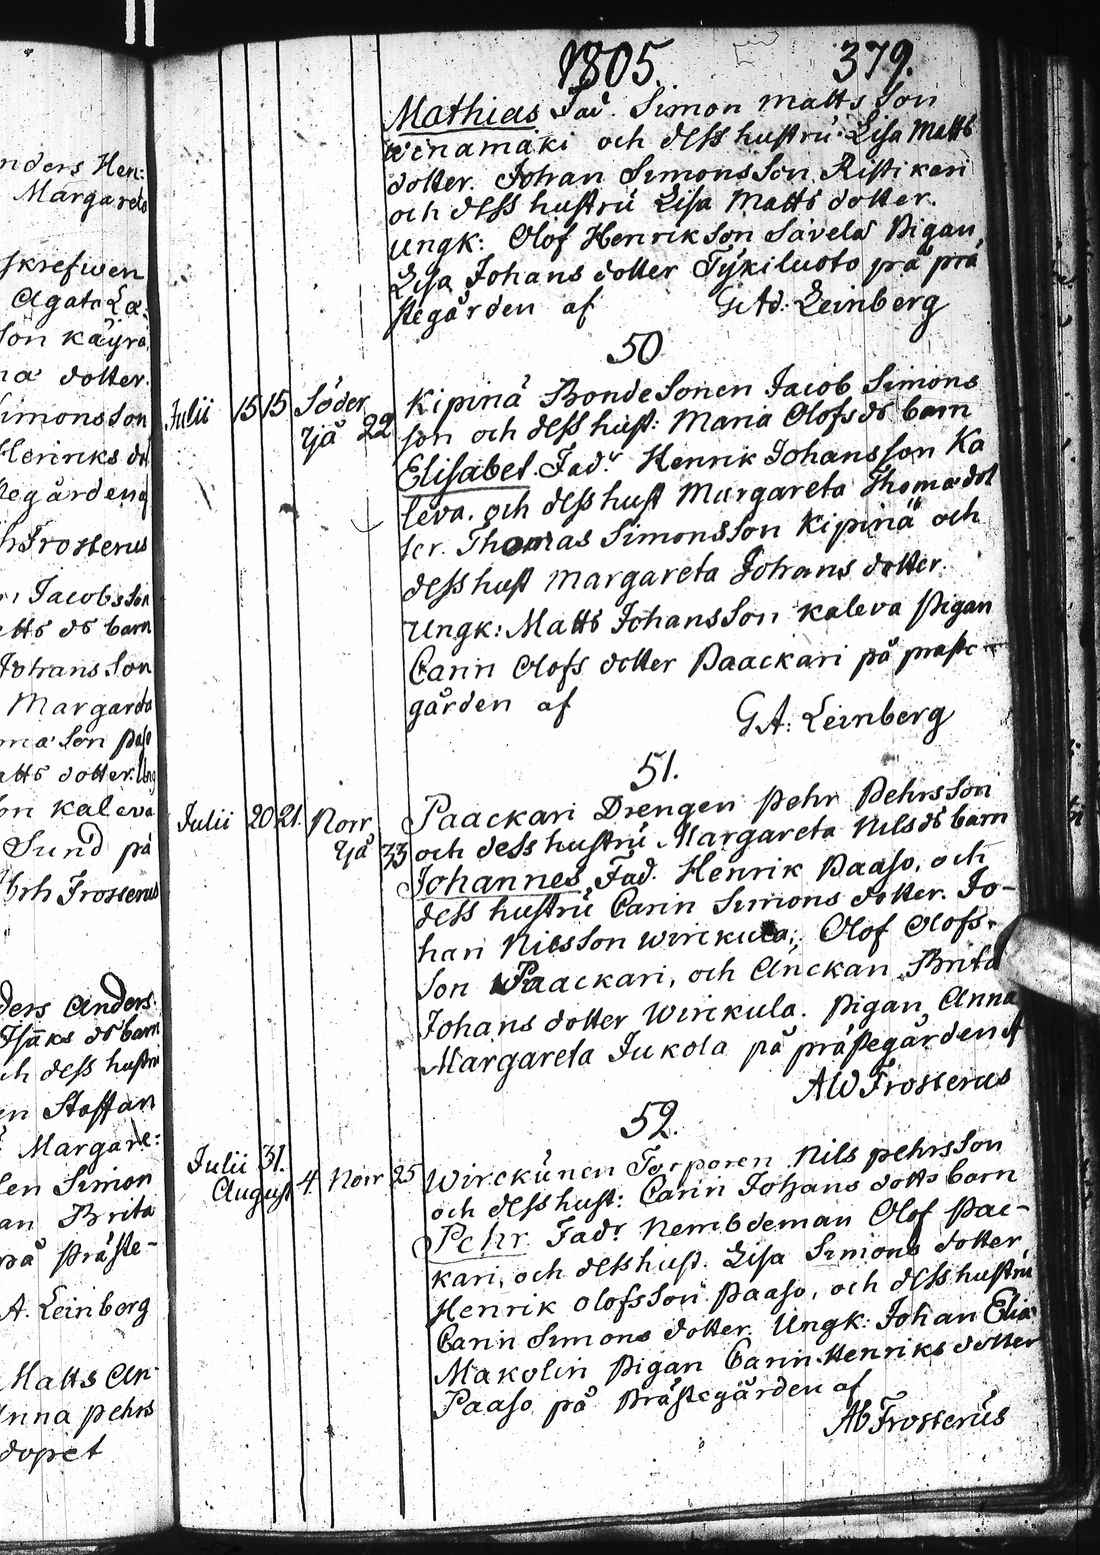 nders Hen:
Margareta
skrefwen
Agata Læ:
son Käyrä
na dotter.
Simonsson
Henriks do
stegården af
h Frosterus
n Jacobsson
atts ds barn
Johansson
Margareta
ma son Paso
atts dotter. Ung
on Kaleva
Sund på
Abrh Frosterus
ders Anders:
Isaks ds barn
ch dess hustru
en Staffan
Margare:
len Simon
an Brita
på Präste-
A. Leinberg
Matts An
Anna Pehrs
döpet
1805. 379.
Mathias Fad. Simon Mattsson
wenamäki och dess hustru: Lisa Matts
dotter. Johan Simonsson Ristikari
och dess hustru Lisa Matts dotter.
Ungk: Olof Henriksson Savela Pigan
Lisa Johans dotter Tykiluoto på prä
stegården af G Ad: Leinberg
50
Julii 15 15 Söder Kipinä Bondesonen Jacob Simons
Yjå 22 son och dess hust: Maria Olofs ds barn
Elisabet. Fadr Henrik Johansson Ka
leva. och dess hust Margareta Thomædot
ter. Thomas Simonsson Kipinä och
dess hust Margareta Johans dotter.
Ungk: Matts Johansson Kaleva Pigan
Carin Olofs dotter Paackari på präste-
gården af G A: Leinberg
51.
Julii 20 21. Norr Paackari Drengen Pehr Pehrsson
Yjå 33 och dess hustru Margareta Nils ds barn
Johannes, Fad. Henrik Paaso, och
dess hustru Carin Simons dotter. Jo-
han Nilsson Wirckula, Olof Olofs-
son Paackari, och Anckan Brita
Johans dotter Wirckula. Pigan Anna
Margareta Jukola på prästegården af
AW Frosterus
52.
Julii 31. Wirckunen Torparen Nils Pehrsson
August 4. Norr 25 och dess hust: Carin Johans dotts barn
Pehr Fadr Nembdeman Olof Pac-
kari, och dess hust. Lisa Simons dotter
Henrik Olofsson Paaso, och dess hustru
Carin Simons dotter. Ungk: Johan Elia
Makolin Pigan Carin Henriks dotter
Paaso på Prästegården af
Ab Frosterus